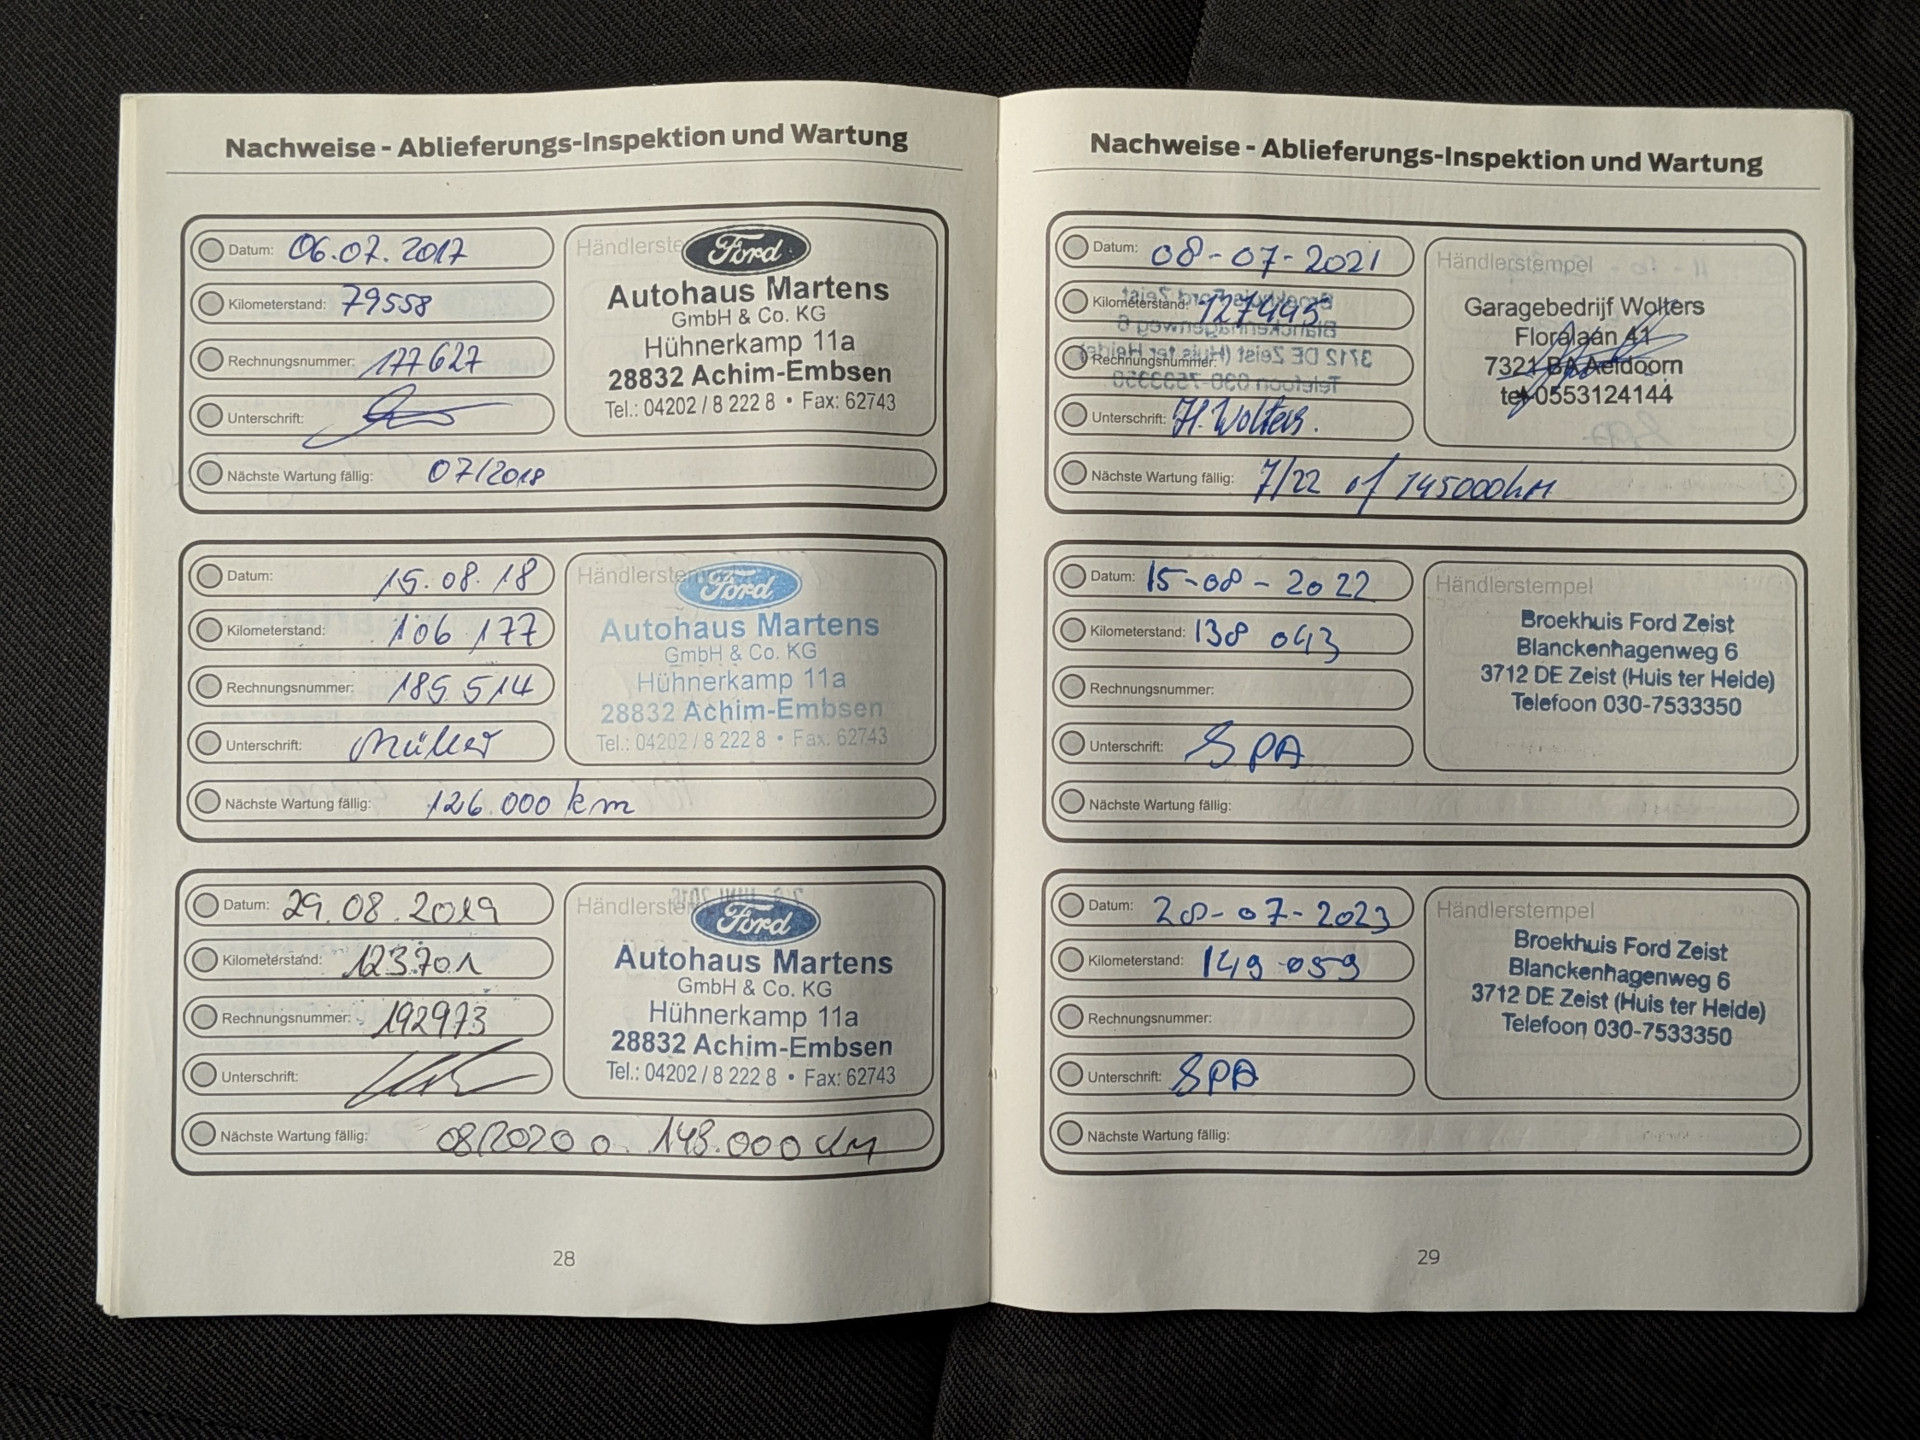 Nachweise - Ablieferungs-Inspektion und Wartung
Datum: 06.07.2017
Kilometerstand: 79558
Rechnungsnummer: 177627
Unterschrift:
Nächste Wartung fällig: 07/2018
Händlerste
Ford
Autohaus Martens
GmbH & Co. KG
Hühnerkamp 11a
28832 Achim-Embsen
Tel.: 04202 / 8 222 8 • Fax: 62743
Datum: 15.08.18
Kilometerstand: 106 177
Rechnungsnummer: 185 514
Unterschrift: Müller
Nächste Wartung fällig: 126.000 km
Händlerstem
Ford
Autohaus Martens
GmbH & Co. KG
Hühnerkamp 11a
28832 Achim-Embsen
Tel.: 04202 / 8 222 8 • Fax: 62743
Datum: 29.08.2019
Kilometerstand: 123.701
Rechnungsnummer: 192973
Unterschrift:
Nächste Wartung fällig: 08/2020 o. 148.000 km
Händlerstem
Ford
Autohaus Martens
GmbH & Co. KG
Hühnerkamp 11a
28832 Achim-Embsen
Tel.: 04202 / 8 222 8 • Fax: 62743
28
Nachweise - Ablieferungs-Inspektion und Wartung
Datum: 08-07-2021
Kilometerstand: 127445
Rechnungsnummer:
Unterschrift: H. Wolters.
Nächste Wartung fällig: 7/22 of 145000km
Händlerstempel
Garagebedrijf Wolters
Floralaan 41
7321 BA Aeldoorn
tel 0553124144
Datum: 15-08-2022
Kilometerstand: 138 043
Rechnungsnummer:
Unterschrift: SPA
Nächste Wartung fällig:
Händlerstempel
Broekhuis Ford Zeist
Blanckenhagenweg 6
3712 DE Zeist (Huis ter Heide)
Telefoon 030-7533350
Datum: 28-07-2023
Kilometerstand: 149 059
Rechnungsnummer:
Unterschrift: SPA
Nächste Wartung fällig:
Händlerstempel
Broekhuis Ford Zeist
Blanckenhagenweg 6
3712 DE Zeist (Huis ter Heide)
Telefoon 030-7533350
29